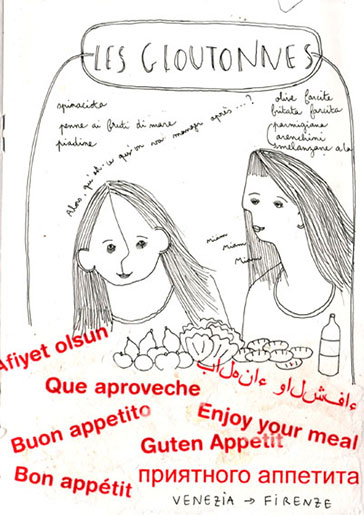 LES GLOUTONNES
spinacista
penne ai fruti di mare
piadine
olive farcite
fritata farcita
parmigiana
arenchini
smelanzane a la
Alors, qu'est-ce qu'on va manger après ....?
miam
Miam
Miam
Afiyet olsun
بالهناء والشفاء
Que aproveche
Buon appetito
Enjoy your meal
Guten Appetit
Bon appétit
приятного аппетита
VENEZIA → FIRENZE